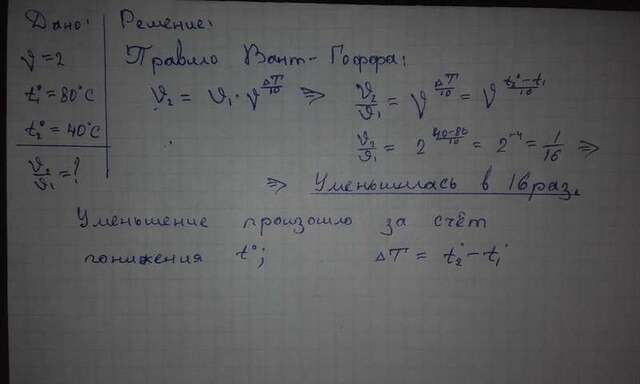 Дано:
γ = 2
t₁° = 80°C
t₂° = 40°C
ϑ₂/ϑ₁ = ?
Решение:
Правило Вант-Гоффа:
ϑ₂ = ϑ₁ · γ^(ΔT/10) => ϑ₂/ϑ₁ = γ^(ΔT/10) = γ^((t₂° - t₁)/10)
ϑ₂/ϑ₁ = 2^((40-80)/10) = 2⁻⁴ = 1/16 =>
=> Уменьшилась в 16 раз.
Уменьшение произошло за счёт
понижения t°; ΔT = t₂° - t₁°